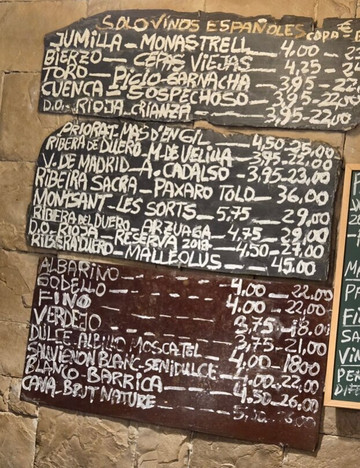 SOLO VINOS ESPAÑOLES
COPA €
JUMILLA - MONASTRELL 4,00 - 22
BIERZO - CEPAS VIEJAS 4,25 - 24
TORO - PICIO-GARNACHA 3,95 - 22
CUENCA - SOSPECHOSO 3,95 - 22,00
D.O. RIOJA CRIANZA 3,95 - 22,00
PRIORAT MAS D'EN GIL 4,50 - 25,00
RIBERA DE DUERO - M. DE VELILLA 3,95 - 22,00
V. DE MADRID - A. CADALSO - 3,95 - 23,00
RIBEIRA SACRA - PAXARO TOLO - 36,00
MONTSANT - LES SORTS - 5,75 29,00
RIBERA DEL DUERO - ARZUAGA 4,75 - 29,00
D.O. RIOJA - RESERVA 2018 4,50 - 27,00
RIBERA DUERO - MALLEOLUS - 45.00
ALBARIÑO 4,00 - 22,00
GODELLO 4,00 - 22,00
FINO 3,75 - 18,00
VERDEJO 3,75 - 21,00
DULCE ALBILLO MOSCATEL 4,00 - 18,00
SAUVIGNON BLANC-SEMIDULCE 4,00 - 22,00
BLANCO - BARRICA 4,50 - 26,00
CAVA - BRUT NATURE